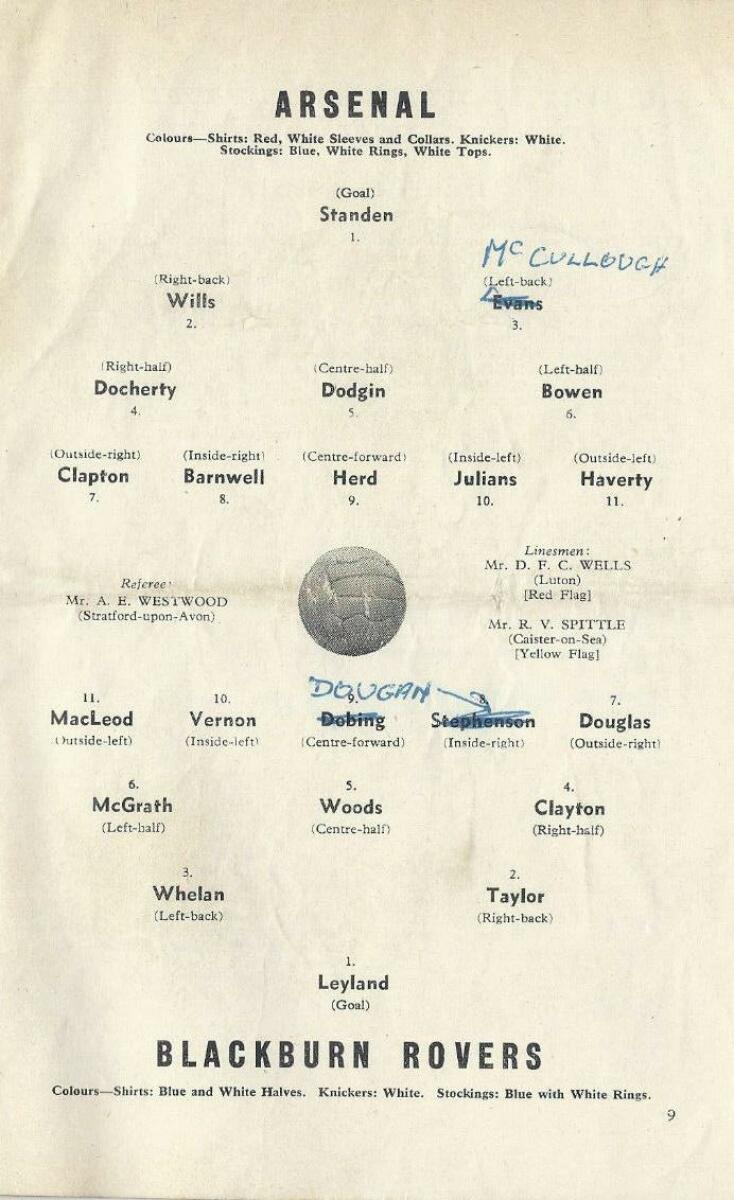 ARSENAL
Colours—Shirts: Red, White Sleeves and Collars. Knickers: White.
Stockings: Blue, White Rings, White Tops.
(Goal)
Standen
1.
McCULLOUGH
(Right-back) (Left-back)
Wills Evans
2. 3.
(Right-half) (Centre-half) (Left-half)
Docherty Dodgin Bowen
4. 5. 6.
(Outside-right) (Inside-right) (Centre-forward) (Inside-left) (Outside-left)
Clapton Barnwell Herd Julians Haverty
7. 8. 9. 10. 11.
Referee:
Mr. A. E. WESTWOOD
(Stratford-upon-Avon)
Linesmen:
Mr. D. F. C. WELLS
(Luton)
[Red Flag]
Mr. R. V. SPITTLE
(Caister-on-Sea)
[Yellow Flag]
DOUGAN
11. 10. 9. 8. 7.
MacLeod Vernon Dobing Stephenson Douglas
(Outside-left) (Inside-left) (Centre-forward) (Inside-right) (Outside-right)
6. 5. 4.
McGrath Woods Clayton
(Left-half) (Centre-half) (Right-half)
3. 2.
Whelan Taylor
(Left-back) (Right-back)
1.
Leyland
(Goal)
BLACKBURN ROVERS
Colours—Shirts: Blue and White Halves. Knickers: White. Stockings: Blue with White Rings.
9